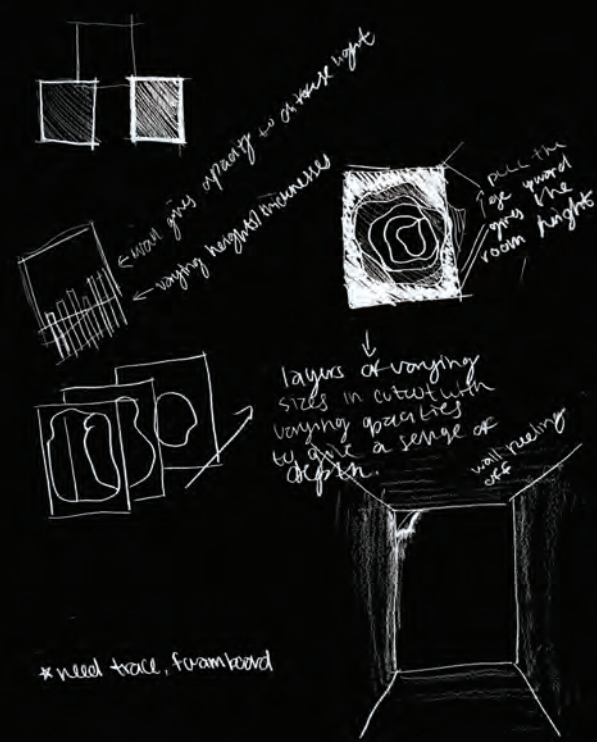 wall gives opacity to diffuse light
varying heights/thicknesses
pull the
eye upward
gives the
room height
layers of varying
sizes in cutout with
varying opacities
to give a sense of
depth.
wall peeling
off
* need trace, foamboard